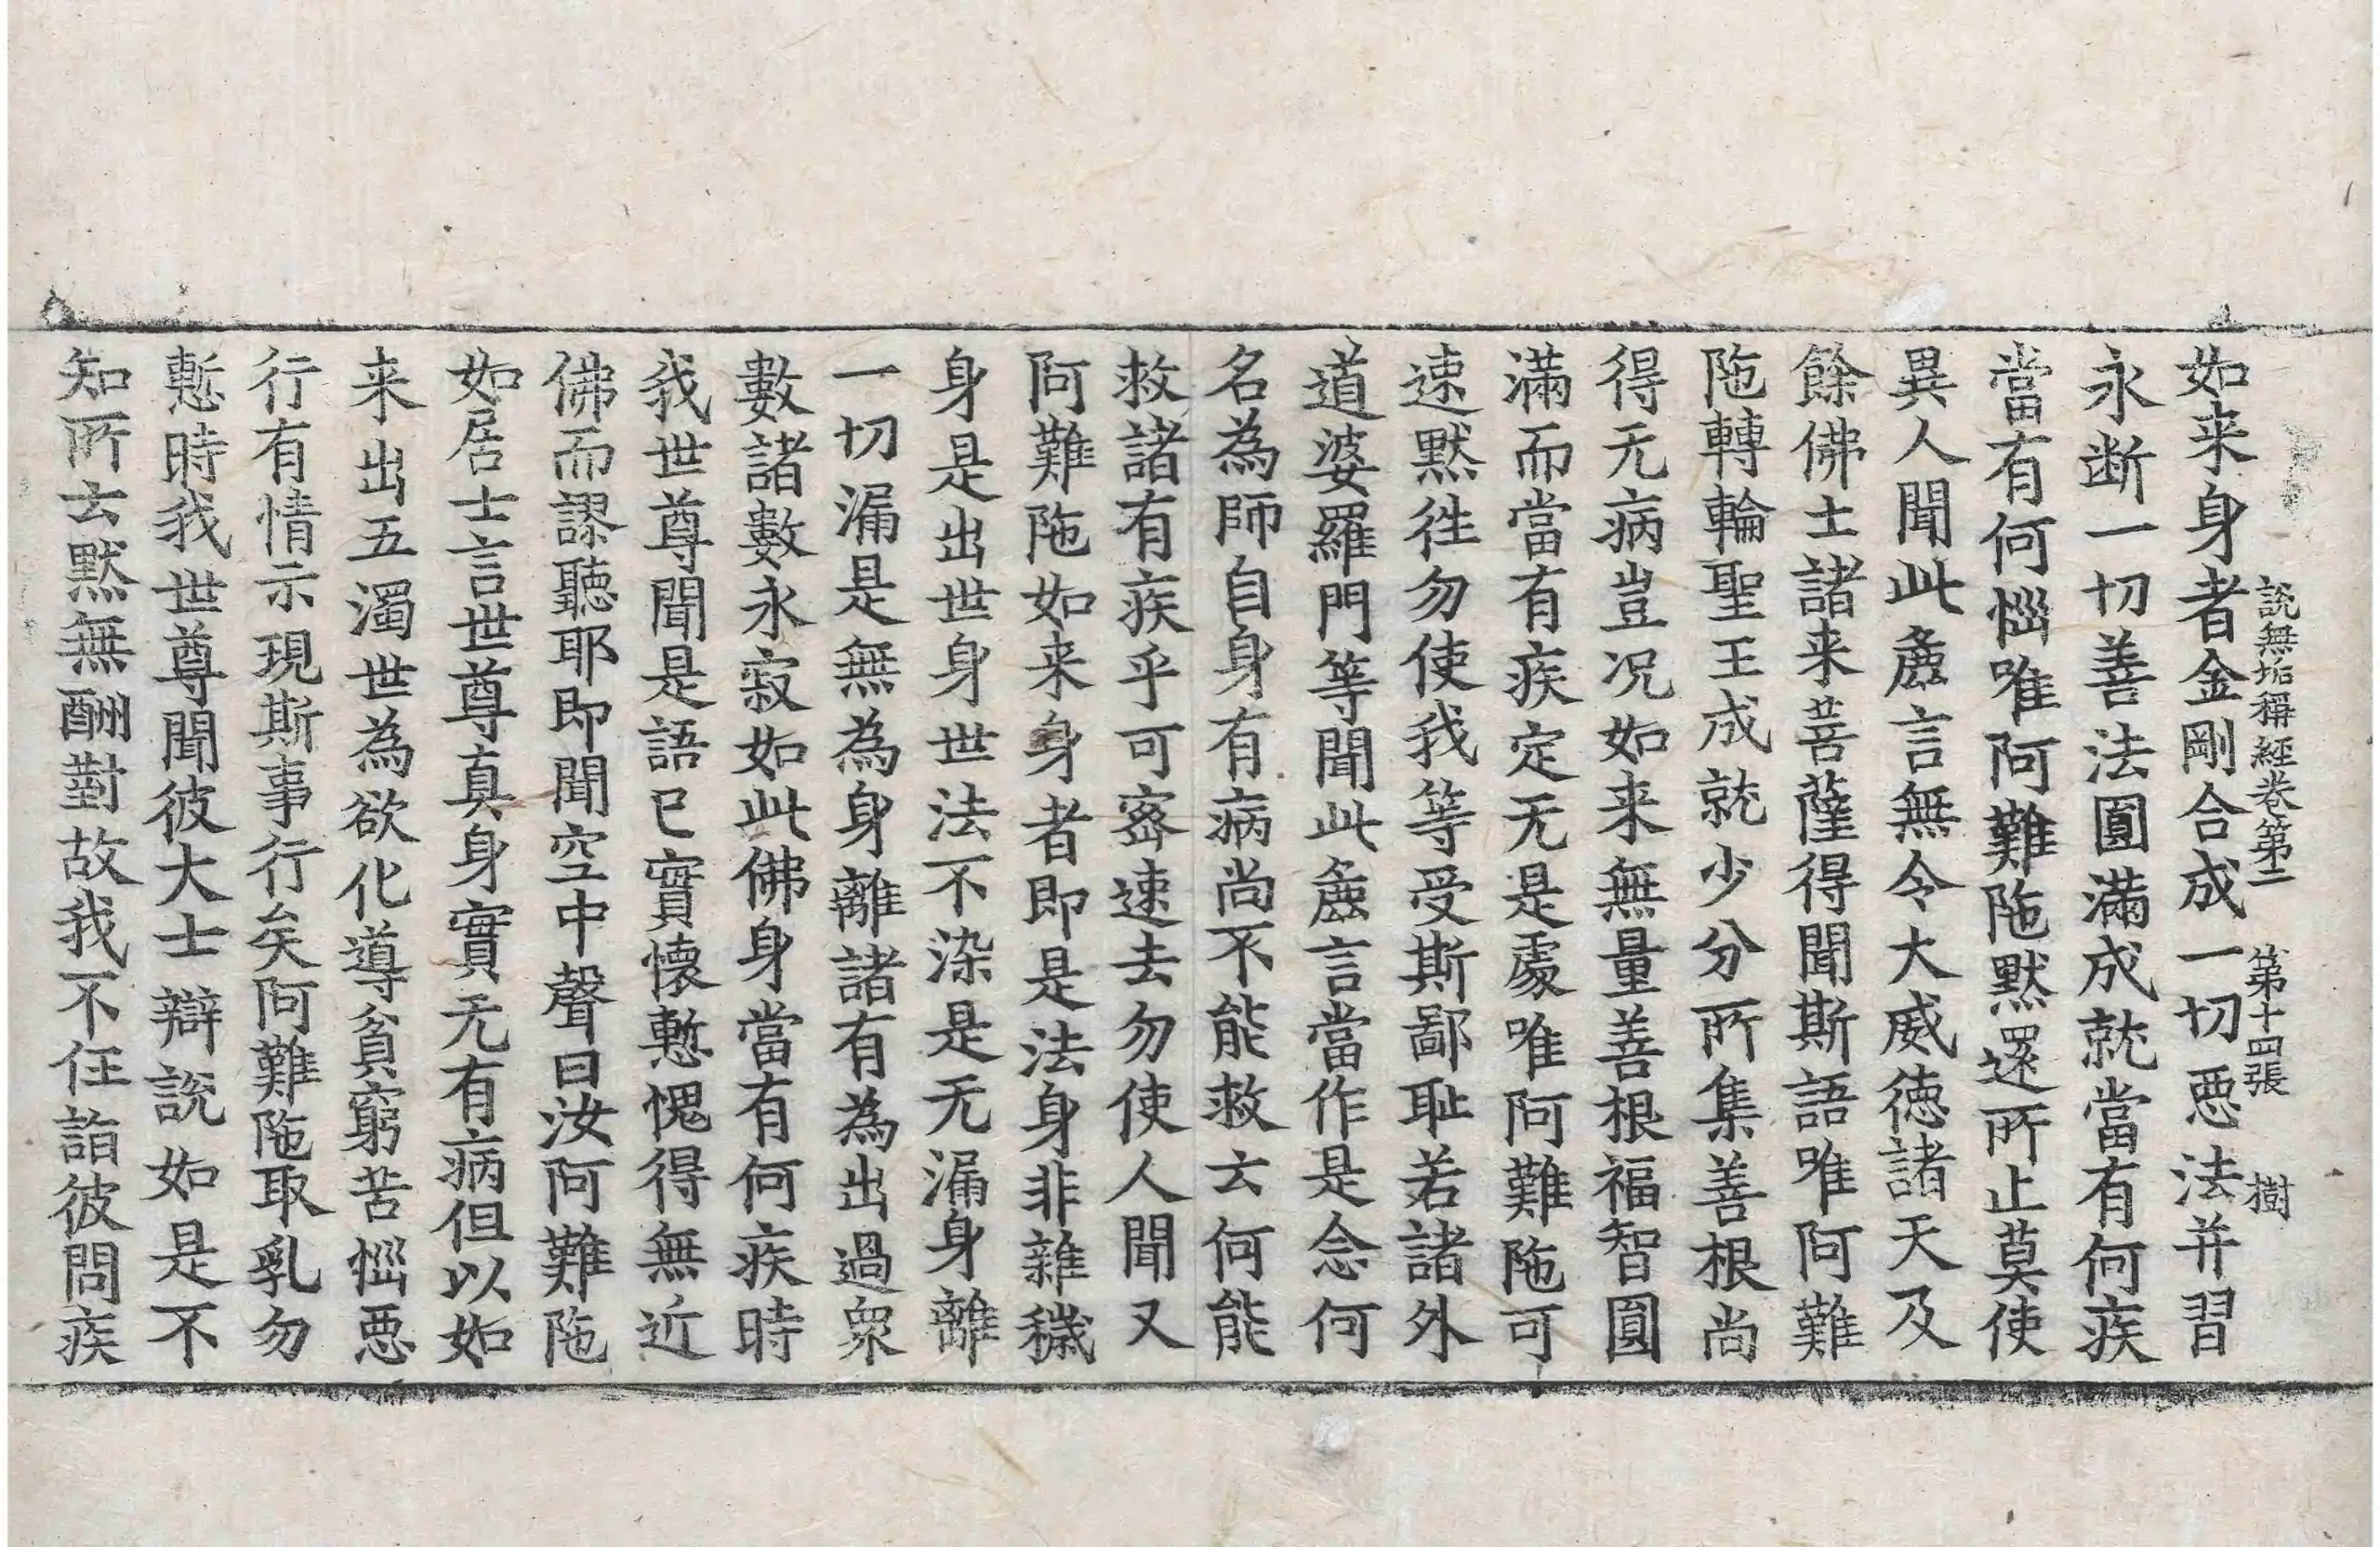 說無垢稱經卷第二 第十四張 樹
如来身者金剛合成一切惡法并習
永断一切善法圓滿成就當有何疾
當有何惱唯阿難陁默還所止莫使
異人聞此麁言無令大威德諸天及
餘佛土諸来菩薩得聞斯語唯阿難
陁轉輪聖王成就少分所集善根尚
得无病豈况如来無量善根福智圓
滿而當有疾定无是處唯阿難陁可
速默徃勿使我等受斯鄙耻若諸外
道婆羅門等聞此麁言當作是念何
名為師自身有病尚不能救云何能
救諸有疾乎可密速去勿使人聞又
阿難陁如来身者即是法身非雜穢
身是出世身世法不染是无漏身離
一切漏是無為身離諸有為出過衆
數諸數永寂如此佛身當有何疾時
我世尊聞是語已實懷慙愧得無近
佛而謬聽耶即聞空中聲曰汝阿難陁
如居士言世尊真身實无有病但以如
来出五濁世為欲化導貧窮苦惱惡
行有情示現斯事行矣阿難陁取乳勿
慙時我世尊聞彼大士辯說如是不
知所云默無酬對故我不任詣彼問疾